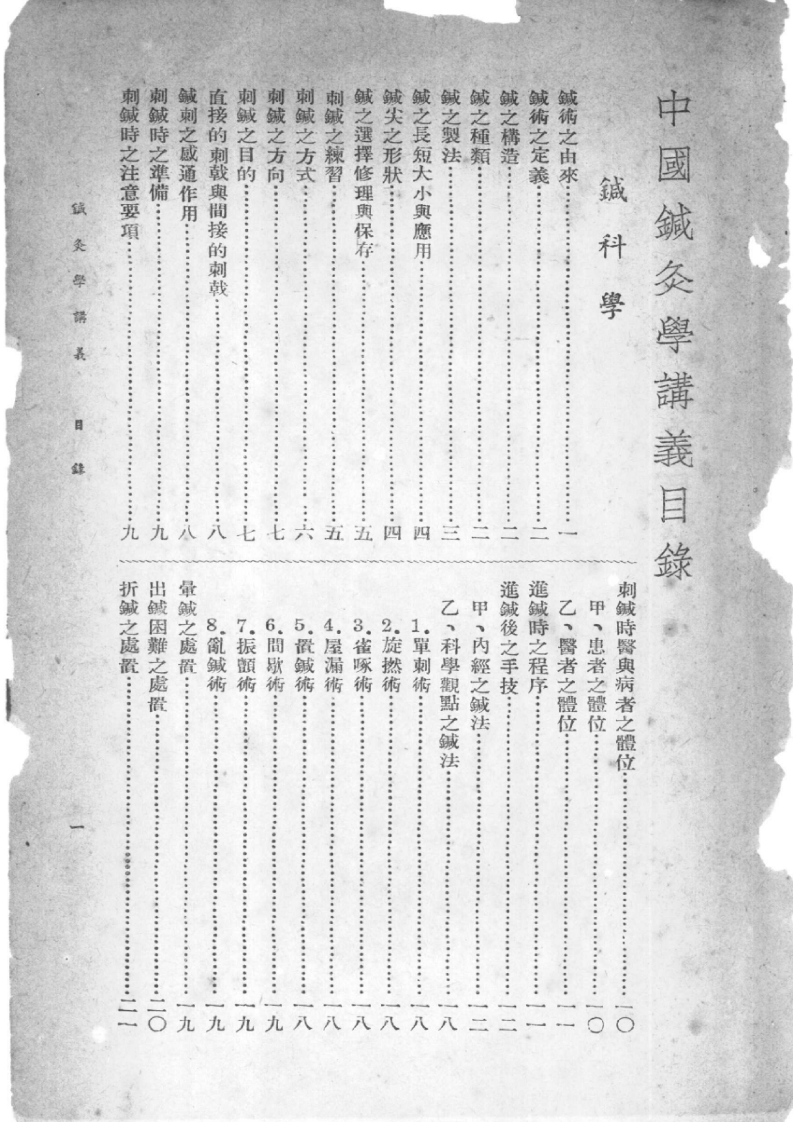 中國鍼灸學講義目錄
鍼科學
鍼術之由來…一
鍼術之定義…二
鍼之構造…二
鍼之種類…二
鍼之製法…三
鍼之長短大小與應用…四
鍼尖之形狀…四
鍼之選擇修理與保存…五
刺鍼之練習…五
刺鍼之方式…六
刺鍼之方向…七
刺鍼之目的…七
直接的刺戟與間接的刺戟…八
鍼刺之感通作用…八
刺鍼時之準備…九
刺鍼時之注意要項…九
刺鍼時醫與病者之體位…一〇
甲、患者之體位…一〇
乙、醫者之體位…一一
進鍼時之程序…一一
進鍼後之手技…一二
甲、內經之鍼法…一二
乙、科學觀點之鍼法…一八
1.單刺術…一八
2.旋撚術…一八
3.雀啄術…一八
4.屋漏術…一八
5.置鍼術…一八
6.間歇術…一九
7.振顫術…一九
8.亂鍼術…一九
暈鍼之處置…一九
出鍼困難之處置…二〇
折鍼之處置…二一
鍼灸學講義 目錄
一